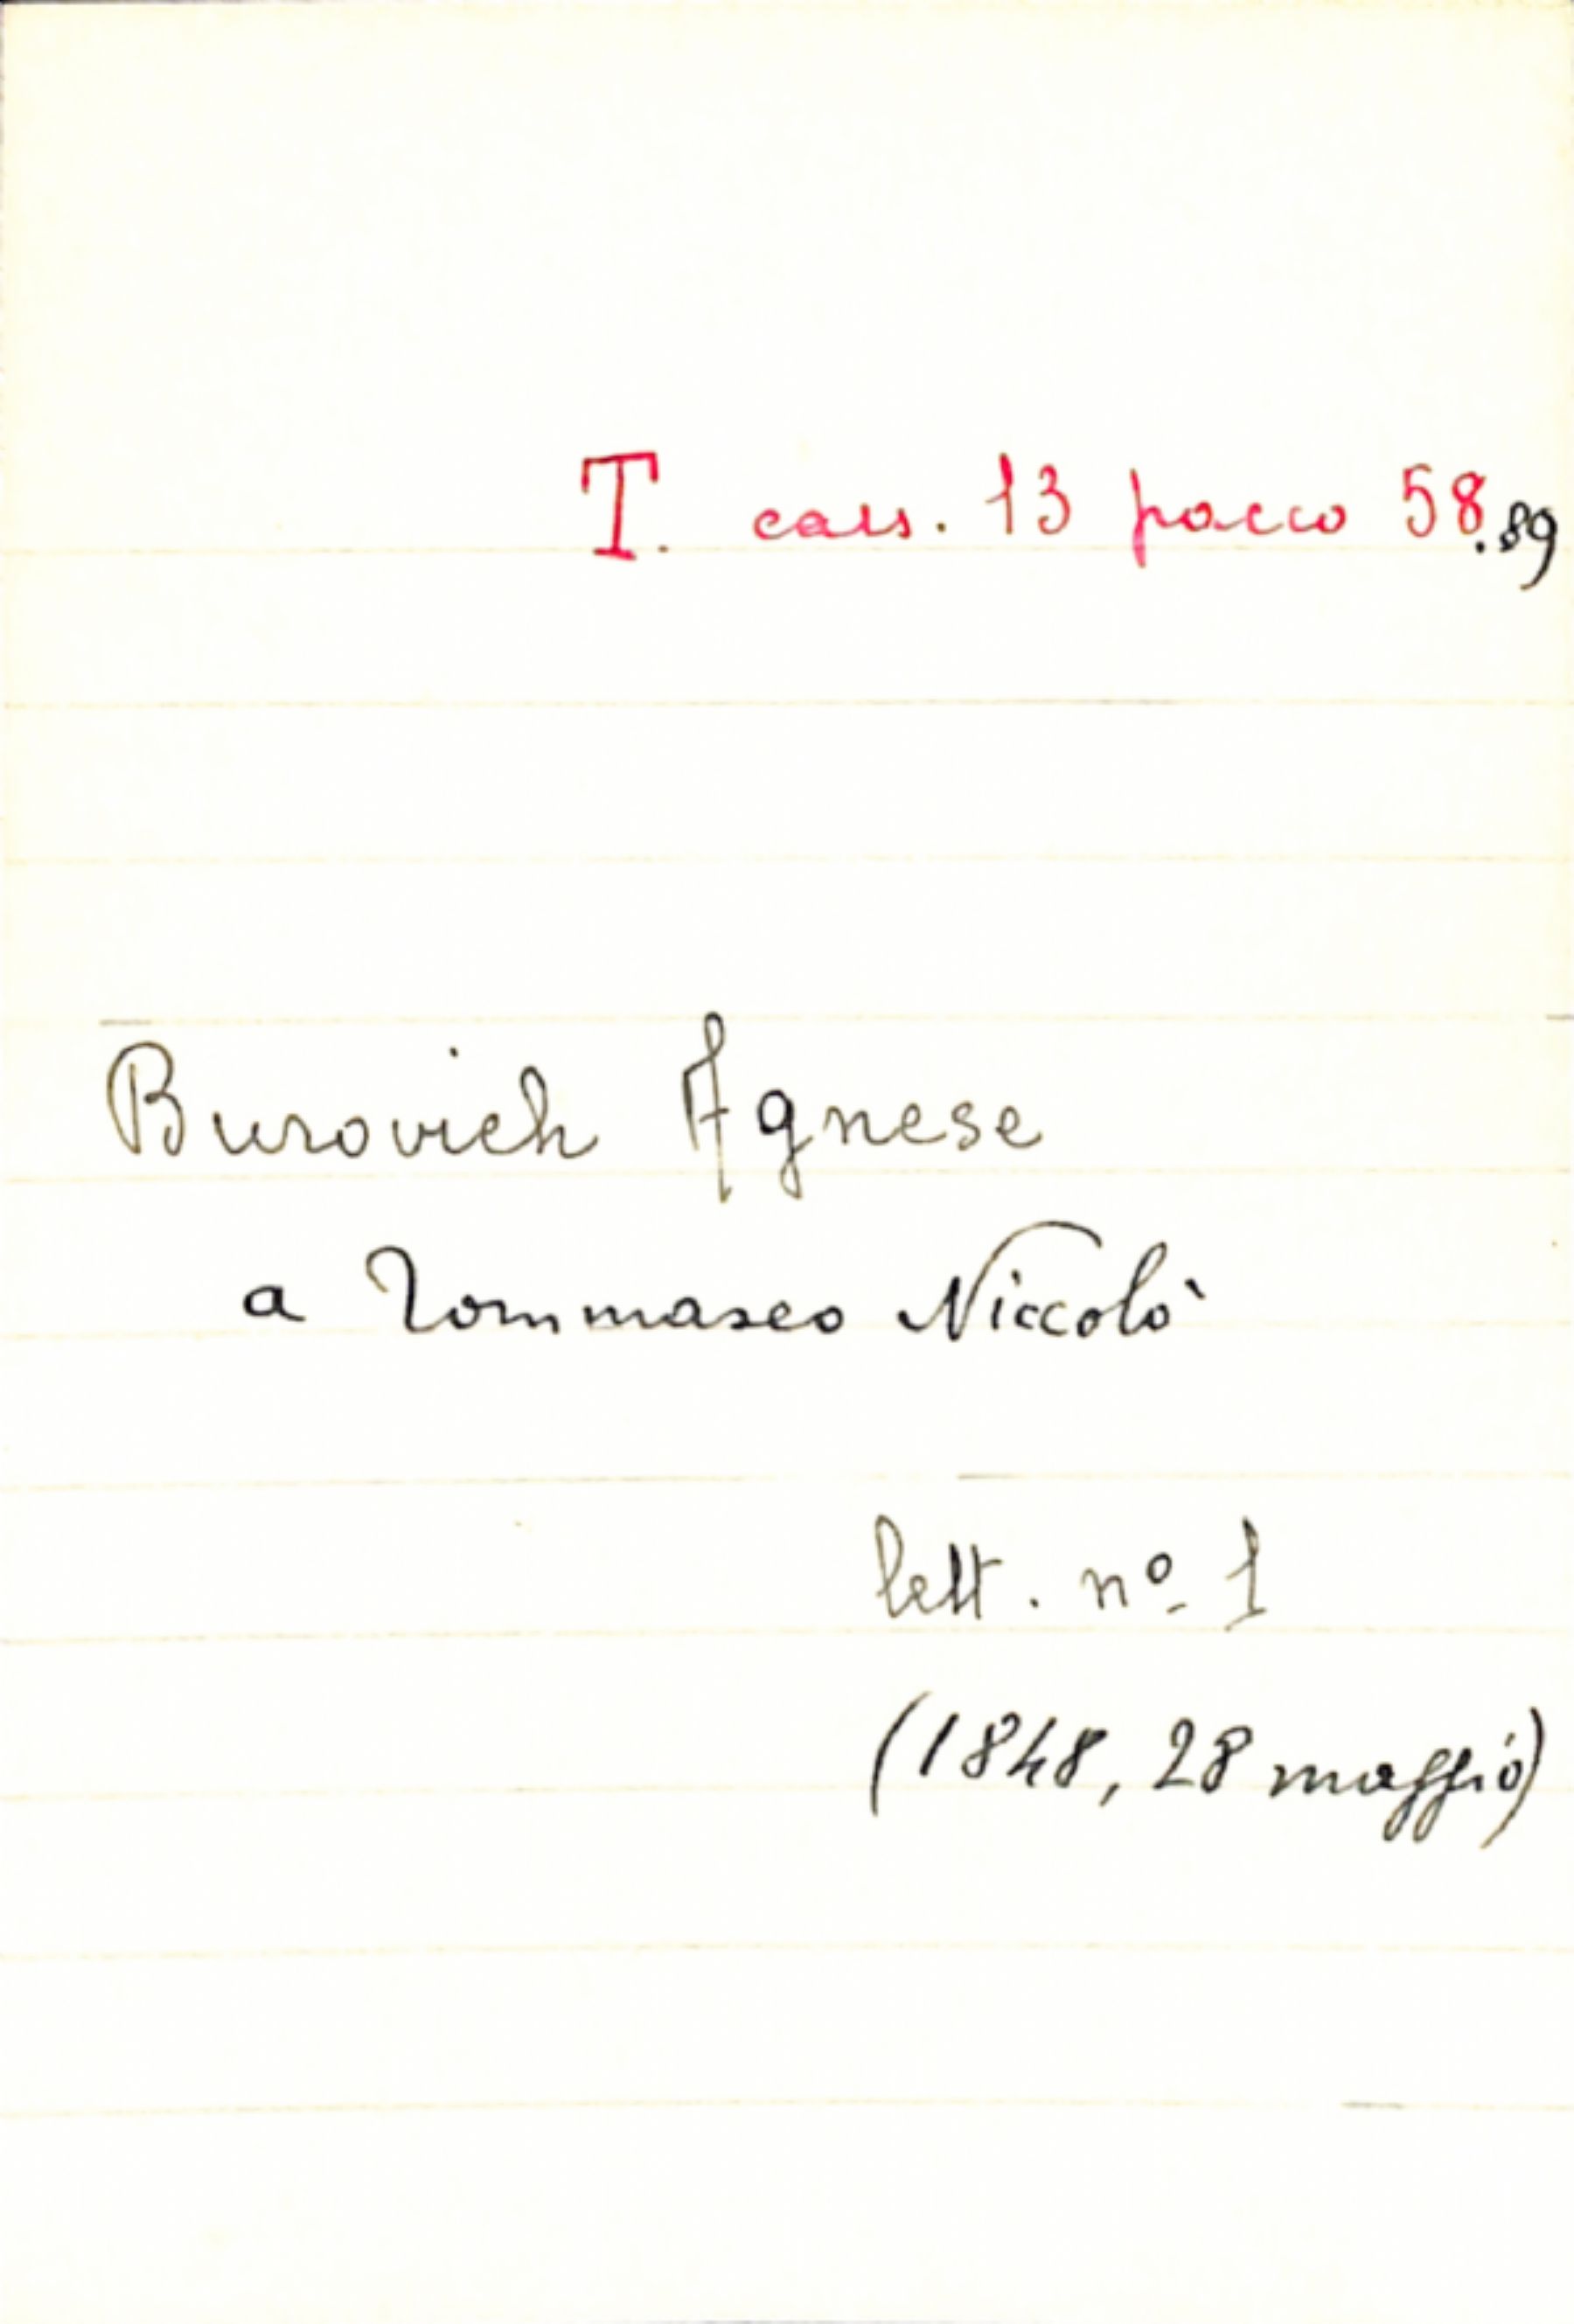 T. cass. 13 pacco 58.89
Burovich Agnese
a Tommaseo Niccolò
lett. nº 1
(1848, 28 maggio)